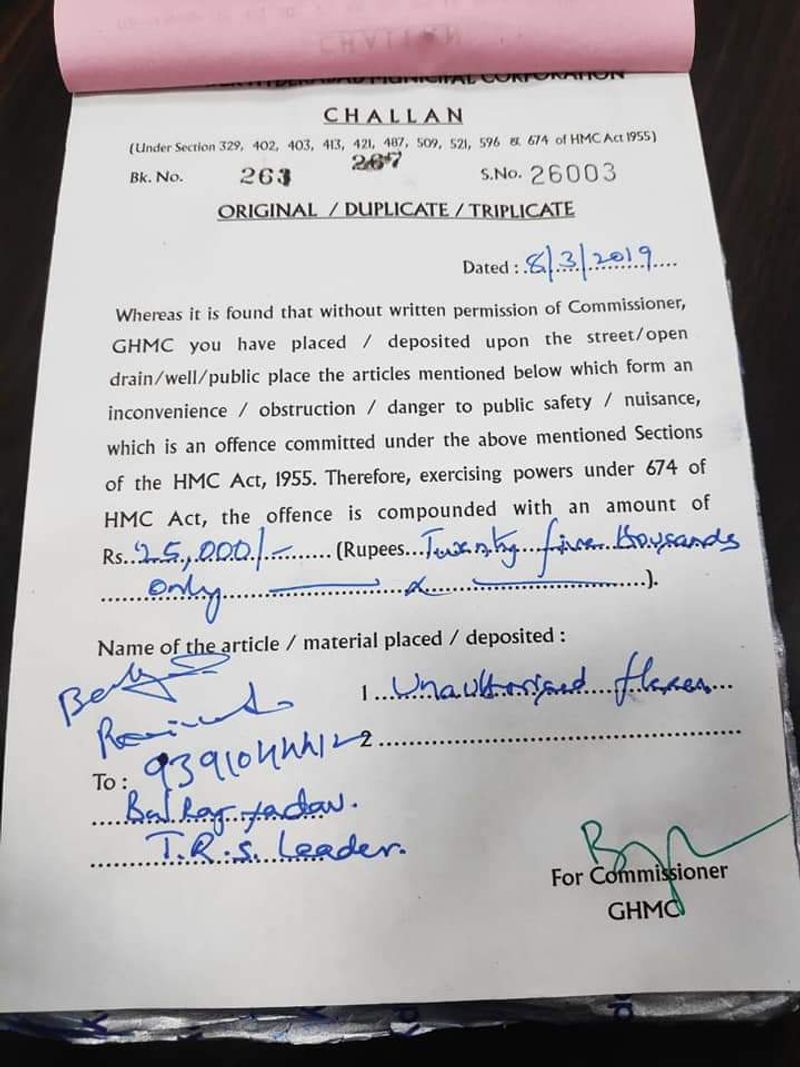 HYDERABAD MUNICIPAL CORPORATION
CHALLAN
(Under Section 329, 402, 403, 413, 421, 487, 509, 521, 596 & 674 of HMC Act 1955)
267
Bk. No. 263 S.No. 26003
ORIGINAL / DUPLICATE / TRIPLICATE
Dated : 8/3/2019
Whereas it is found that without written permission of Commissioner,
GHMC you have placed / deposited upon the street/open
drain/well/public place the articles mentioned below which form an
inconvenience / obstruction / danger to public safety / nuisance,
which is an offence committed under the above mentioned Sections
of the HMC Act, 1955. Therefore, exercising powers under 674 of
HMC Act, the offence is compounded with an amount of
Rs. 25,000/- (Rupees Twenty five thousands
only ).
Name of the article / material placed / deposited :
1 Unauthorised flexes
2
To : 9391044412
Bal Raj Yadav.
T.R.S. Leader.
For Commissioner
GHMC